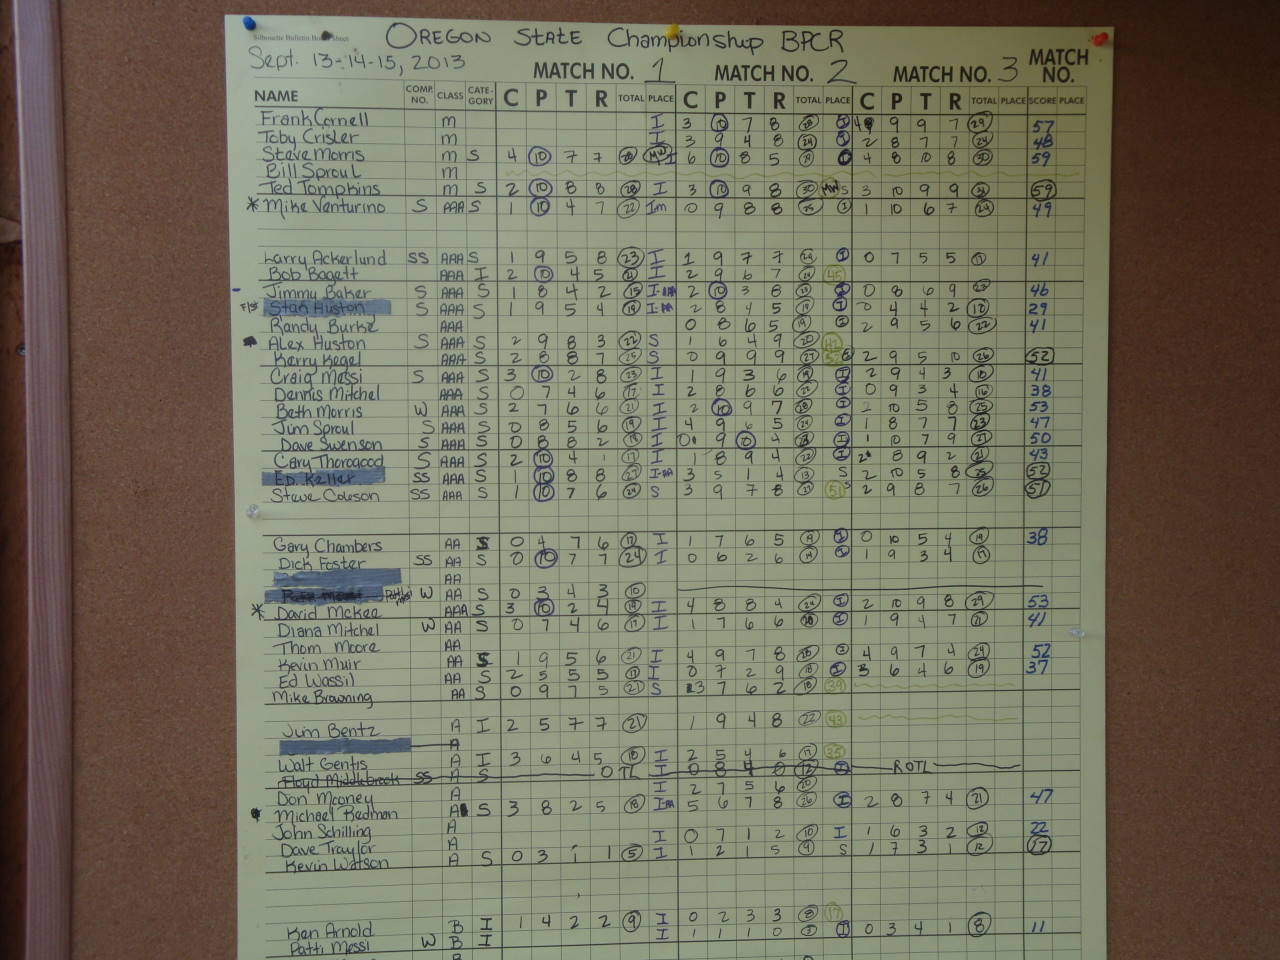 Silhouette Bulletin Board Sheet
OREGON STATE Championship BPCR
Sept. 13-14-15, 2013
MATCH NO. 1 MATCH NO. 2 MATCH NO. 3 MATCH NO.
NAME COMP. NO. CLASS CATE-GORY C P T R TOTAL PLACE C P T R TOTAL PLACE C P T R TOTAL PLACE SCORE PLACE
Frank Cornell M I 3 10 7 8 28 9 9 7 29 57
Toby Crisler M I 3 9 4 8 24 2 8 7 7 24 48
Steve Morris M S 4 10 7 7 28 6 10 8 5 29 4 8 10 8 30 59
Bill Sproul M
Ted Tompkins M S 2 10 8 8 28 I 3 10 9 8 30 MW S 3 10 9 9 31 59
* Mike Venturino S AAA S 1 10 4 7 22 Im 0 9 8 8 25 I 1 10 6 7 24 49
Larry Ackerlund SS AAA S 1 9 5 8 23 I 1 9 7 7 24 I 0 7 5 5 17 41
Bob Bogett AAA I 2 10 4 5 21 I 2 9 6 7 24 45
Jimmy Baker S AAA S 1 8 4 2 15 I-AAA 2 10 3 8 23 I 0 8 6 9 23 46
Stan Huston S AAA S 1 9 5 4 19 2 8 4 5 19 I 0 4 4 2 10 29
Randy Burke AAA 0 8 6 5 19 I 2 9 5 6 22 41
Alex Huston S AAA S 2 9 8 3 22 S 1 6 4 9 20 42
Kerry Kegel AAA S 2 8 8 7 25 S 0 9 9 9 27 S 2 9 5 10 26 52
Craig Messi S AAA S 3 10 2 8 23 I 1 9 3 6 19 I 2 9 4 3 18 41
Dennis Mitchel AAA S 0 7 4 6 17 I 2 8 6 6 22 I 0 9 3 4 16 38
Beth Morris W AAA S 2 7 6 6 21 I 2 10 9 7 28 I 2 10 5 8 25 53
Jim Sproul S AAA S 0 8 5 6 19 I 4 9 6 5 24 I 1 8 7 7 23 47
Dave Swenson S AAA S 0 8 8 2 18 I 0 9 10 4 23 I 1 10 7 9 27 50
Cary Thorogood S AAA S 2 10 4 1 17 I 1 8 9 4 22 I 2 8 9 2 21 43
Ed. Keller SS AAA S 1 10 8 8 27 I-AA 3 5 1 4 13 S 2 10 5 8 25 52
Steve Coleson SS AAA S 1 10 7 6 24 S 3 9 7 8 27 51 S 2 9 8 7 26 51
Gary Chambers AA S 0 4 7 6 17 I 1 7 6 5 19 I 0 10 5 4 19 38
Dick Foster SS AA S 0 10 7 7 24 I 0 6 2 6 14 I 1 9 3 4 17
AA
W AA S 0 3 4 3 10
* David McKee AAA S 3 10 2 4 19 I 4 8 8 4 24 I 2 10 9 8 29 53
Diana Mitchel W AA S 0 7 4 6 17 I 1 7 6 6 20 I 1 9 4 7 21 41
Thom Moore AA
Kevin Muir AA S 1 9 5 6 21 I 4 9 7 8 28 I 4 9 7 4 24 52
Ed Wassil AA S 2 5 5 5 17 I 0 7 2 9 18 I 3 6 4 6 19 37
Mike Browning AA S 0 9 7 5 21 S 3 7 6 2 18 39
Jim Bentz A I 2 5 7 7 21 1 9 4 8 22 43
A
Walt Gentis A I 3 6 4 5 18 I 2 5 4 6 17 35
Floyd Middlebrook SS A S 0 TL I 0 8 4 0 12 I ROTL
Don Mooney A I 2 7 5 6 20
Michael Redman A S 3 8 2 5 18 I-AA 5 6 7 8 26 I 2 8 7 4 21 47
John Schilling A
Dave Traylor A I 0 7 1 2 10 I 1 6 3 2 12 22
Kevin Watson A S 0 3 1 1 5 I 1 2 1 5 9 S 1 7 3 1 12 17
Ken Arnold B I 1 4 2 2 9 I 0 2 3 3 8 17
Patti Messi W B I I 1 1 1 0 3 I 0 3 4 1 8 11